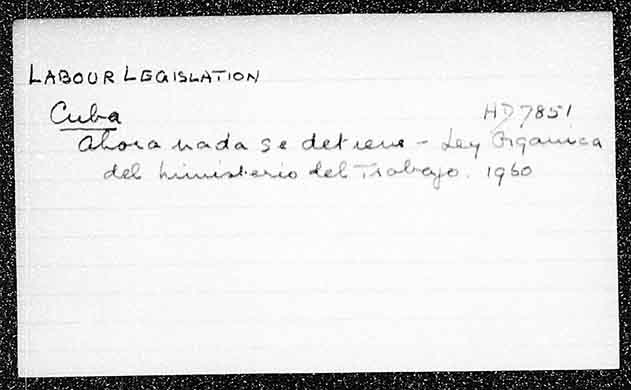 LABOUR LEGISLATION
Cuba HD 7851
Ahora nada se detiene - Ley Organica
del Ministerio del Trabajo. 1960